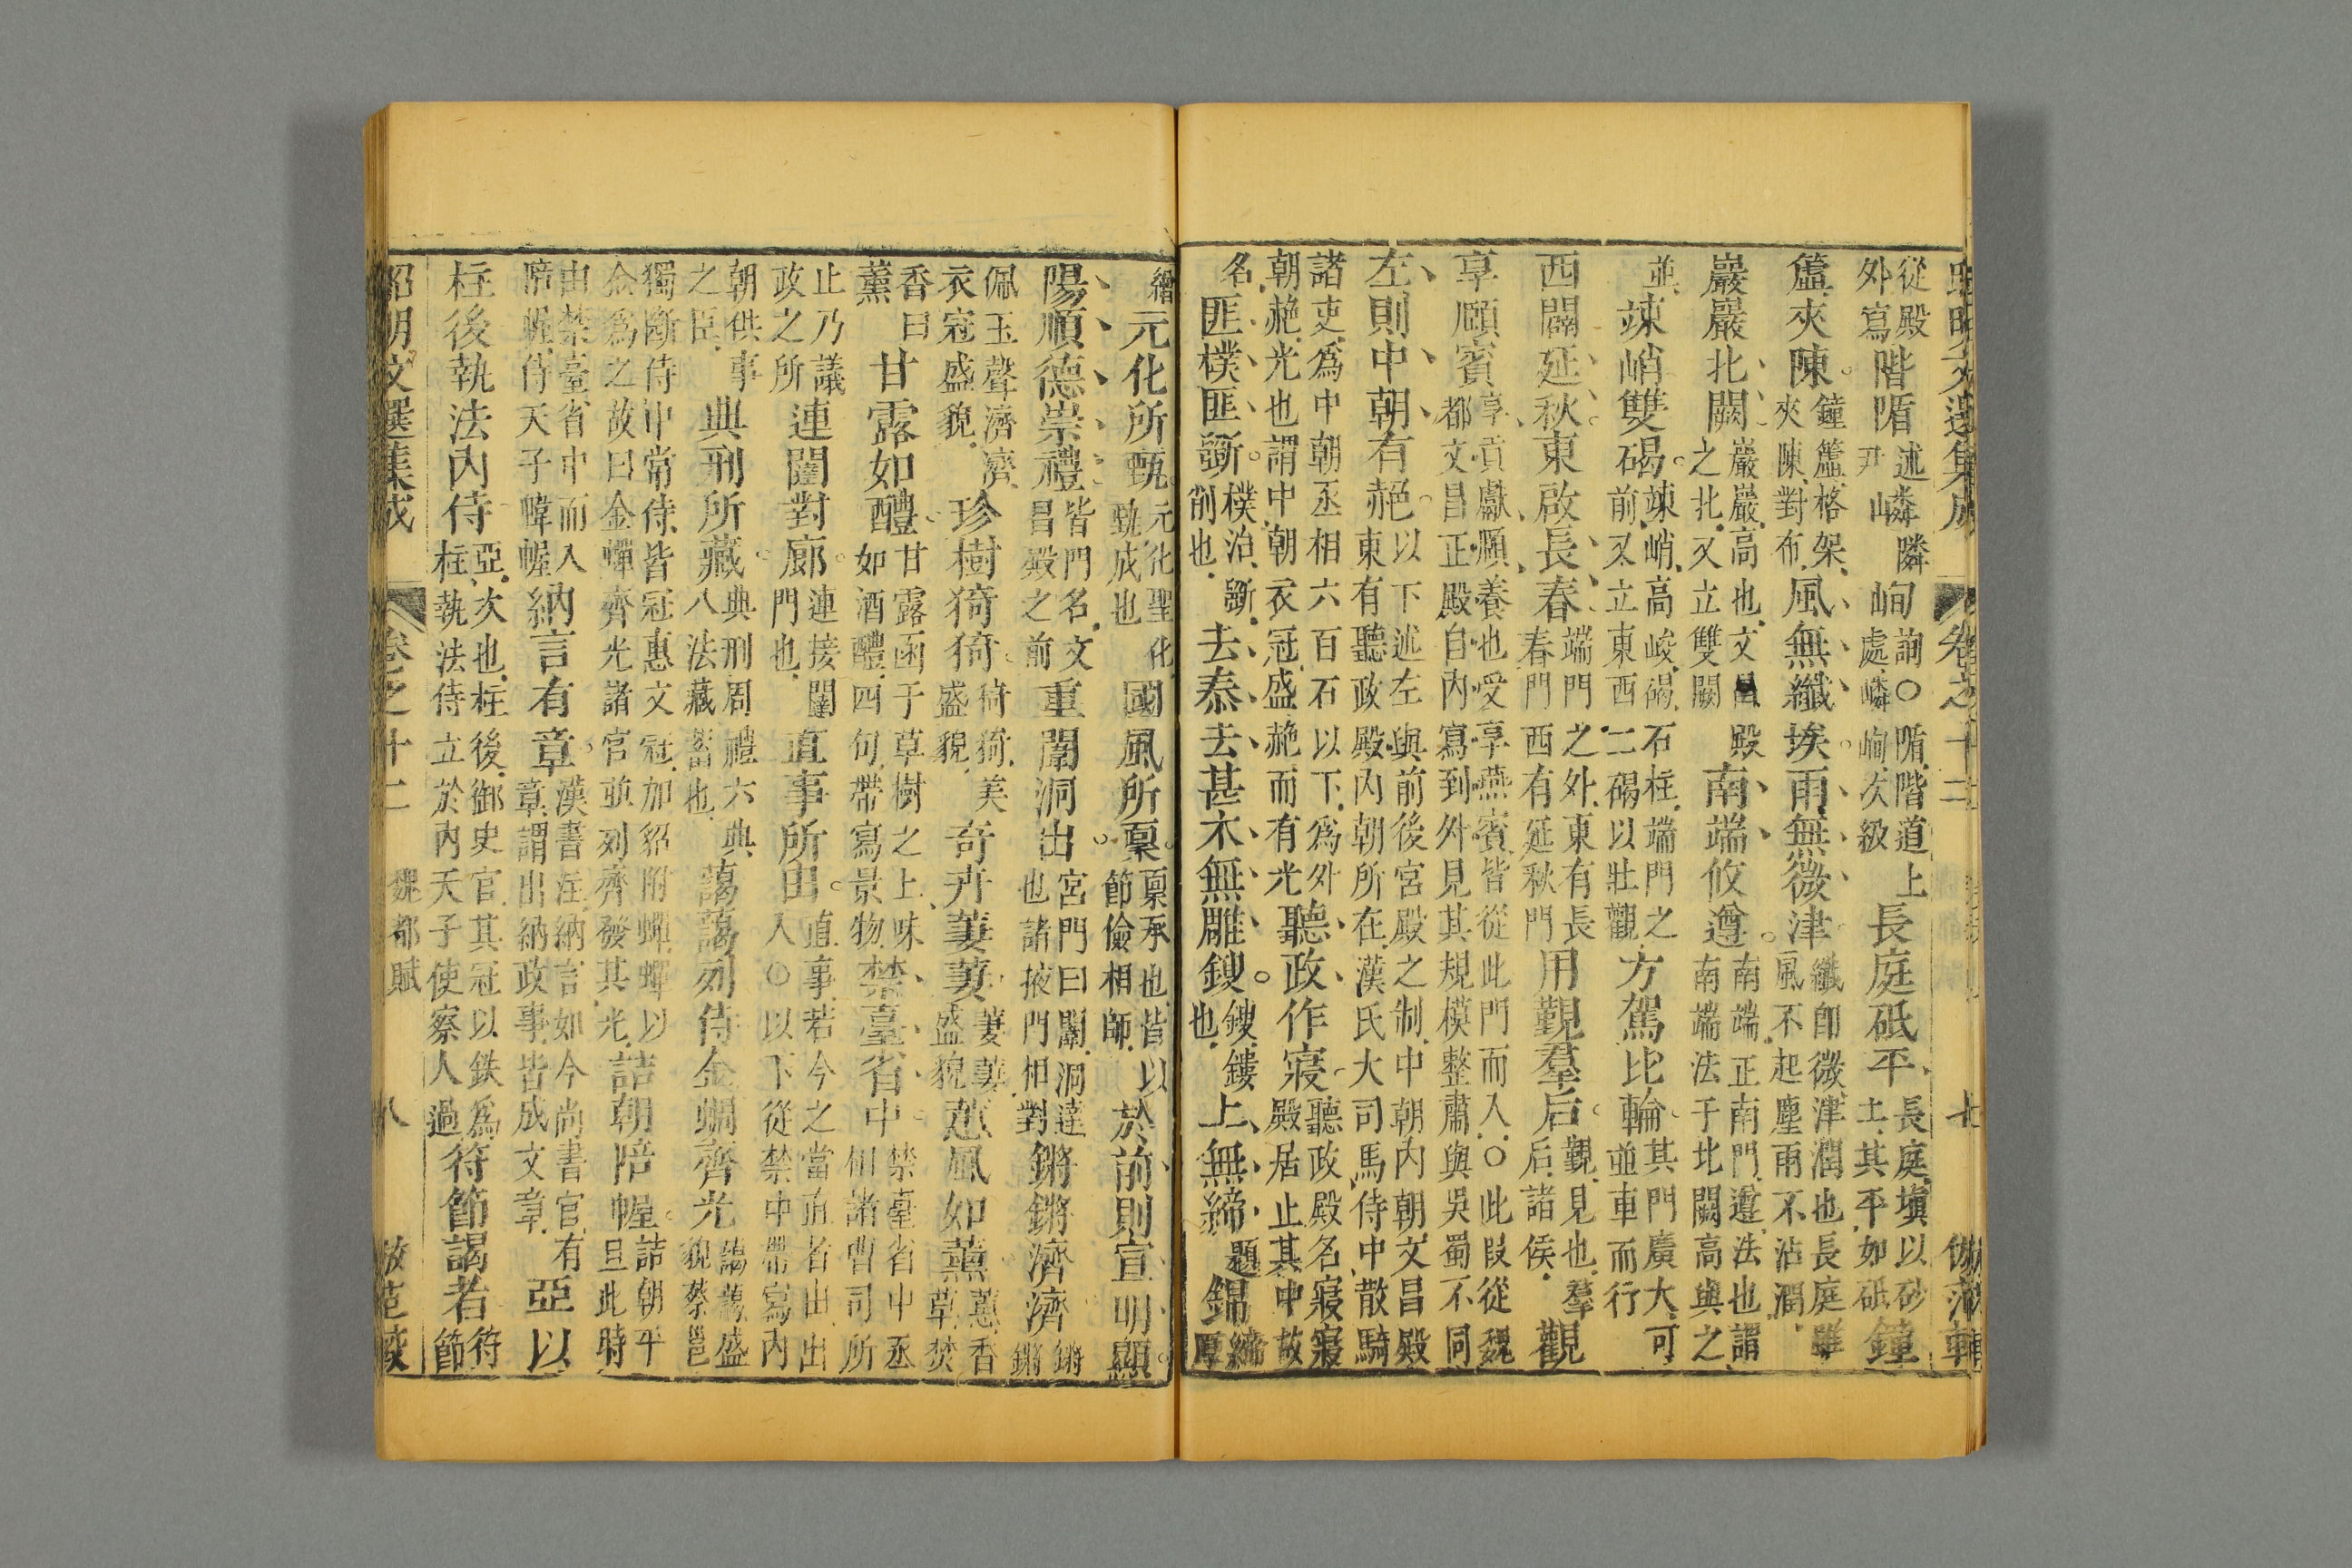 昭明文選集成 卷之十二 七 倣范軒
從殿外寫階㯐述尹嶙隣峋詢○㯐階道上處嶙峋次級長庭砥平長庭塡以砂土其平如砥鐘
簴夾陳鐘簴格架夾陳對布風無纖埃雨無微津纖卽微津潤也長庭雖風不起塵雨不沾潤
巖巖北闕巖巖高也文昌殿之北又立雙闕南端攸遵南端正南門遵法也謂南端法于北闕高與之
並竦峭雙碣竦峭高峻碣石柱端門之前又立東西二碣以壯觀方駕比輪其門廣大可並車而行
西闢延秋東啟長春端門之外東有長春門西有延秋門用覲羣后覲見也羣后諸侯觀
享頤賓享貢獻頤養也受享燕賓皆從此門而入○此段從魏都文昌正殿自內寫到外見其規模整肅與吳蜀不同
左則中朝有赩以下述左與前後宮殿之制中朝內朝文昌殿東有聽政殿內朝所在漢氏大司馬侍中散騎
諸吏爲中朝丞相六百石以下爲外朝赩光也謂中朝衣冠盛赩而有光聽政作寢聽政殿名寢寢殿居止其中故
名匪樸匪斲樸治斲削也去泰去甚木無雕鎪鎪鏤也上無綈題錦綈厚
繒元化所甄元化聖化甄成也國風所禀禀承也皆以節儉相師於前則宣明顯
陽順德崇禮皆門名文昌殿之前重闈洞出宮門曰闈洞達也諸掖門相對鏘鏘濟濟鏘鏘
佩玉聲濟濟衣冠盛貌珍樹猗猗猗猗美盛貌奇卉萋萋萋萋盛貌蕙風如薰蕙香草焚
香曰薰甘露如醴甘露函于草樹之上味如酒醴四句帶寫景物禁臺省中禁臺省中丞相諸曹司所
止乃議政之所連闥對廊連接闥門也直事所由直事若今之當直者出出入○以下從禁中帶寫內
朝供事之臣典刑所藏典刑周禮六典八法藏蓄也藹藹列侍金蜩齊光藹藹盛貌蔡邕
獨斷侍中常侍皆冠惠文冠加貂附蟬蟬以金爲之故曰金蟬齊光諸官並列齊發其光詰朝陪幄詰朝平旦此時
由禁臺省中而入陪幄侍天子幃幄納言有章漢書注納言如今尚書官有章謂出納政事皆成文章亞以
柱後執法內侍亞次也柱後御史官其冠以鉄爲柱執法侍立於內天子使察人過符節謁者符節
昭明文選集成 卷之十二 魏都賦 八 倣范軒